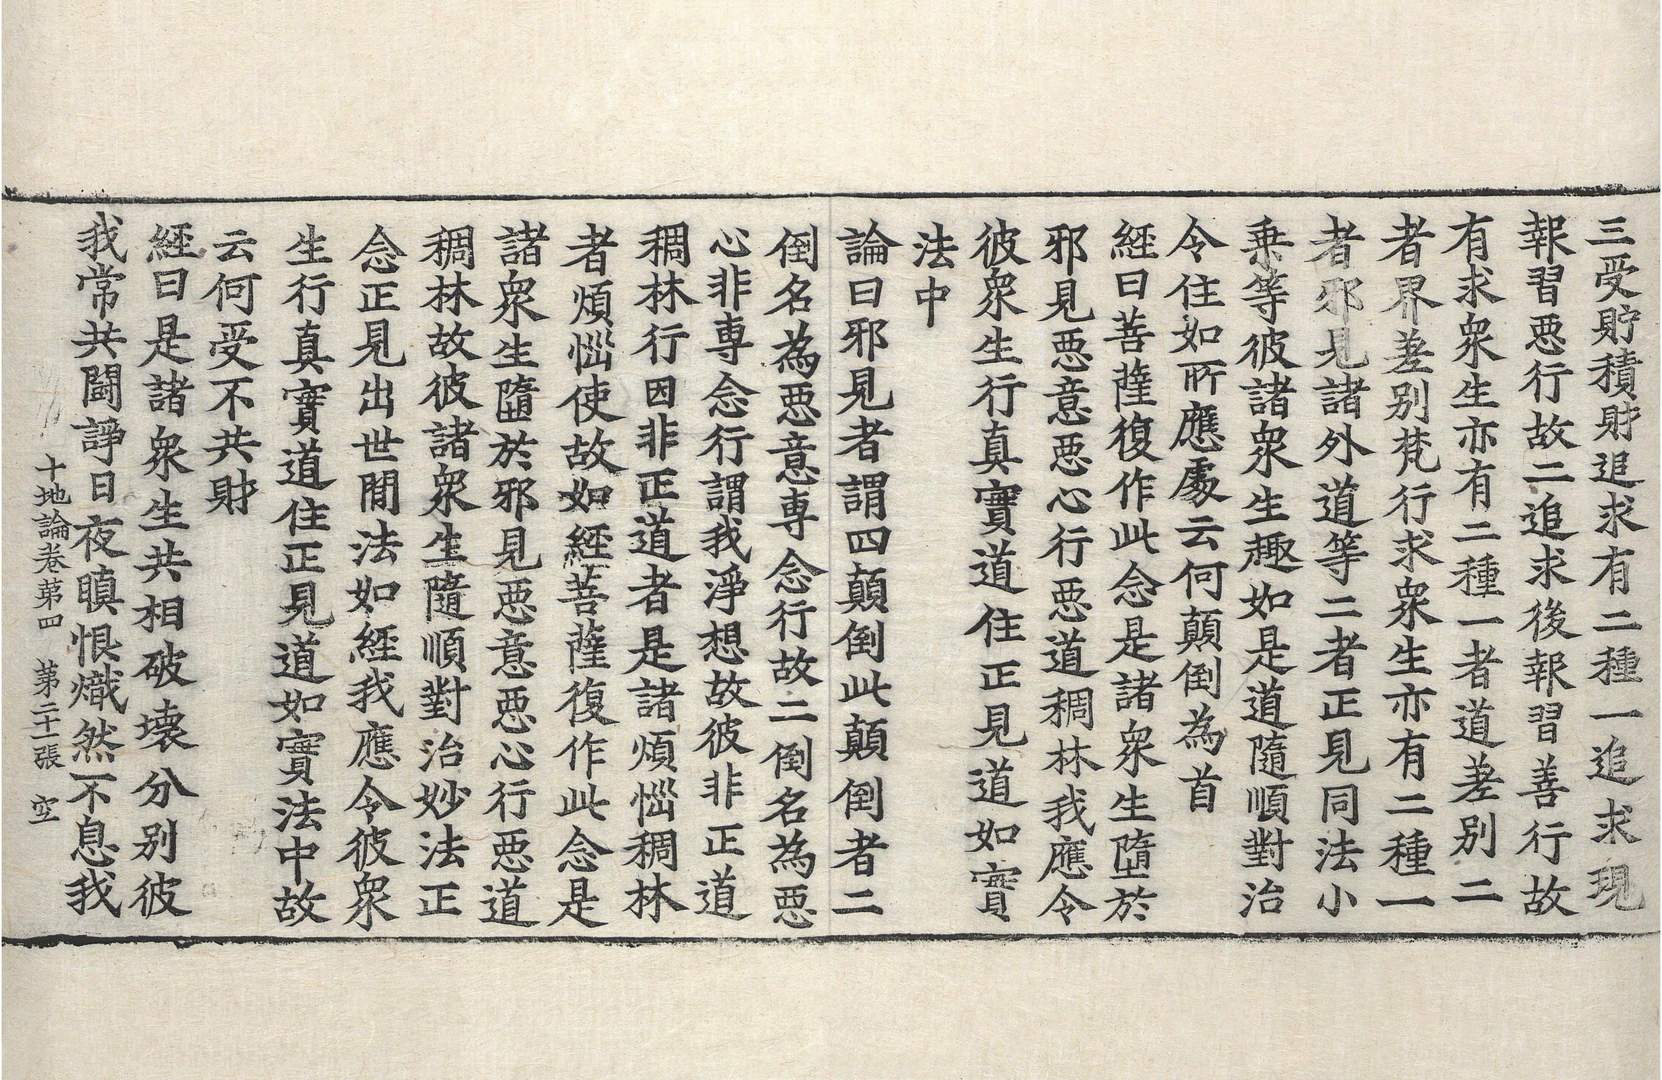 三受貯積財追求有二種一追求現
報習惡行故二追求後報習善行故
有求衆生亦有二種一者道差別二
者界差别梵行求衆生亦有二種一
者邪見諸外道等二者正見同法小
乗等彼諸衆生趣如是道隨順對治
令住如所應處云何顛倒為首
經曰菩薩復作此念是諸衆生墮於
邪見惡意惡心行惡道稠林我應令
彼衆生行真實道住正見道如實
法中
論曰邪見者謂四顛倒此顛倒者二
倒名為惡意專念行故二倒名為惡
心非專念行謂我淨想故彼非正道
稠林行因非正道者是諸煩惱稠林
者煩惱使故如經菩薩復作此念是
諸衆生墮於邪見惡意惡心行惡道
稠林故彼諸衆生隨順對治妙法正
念正見出世間法如經我應令彼衆
生行真實道住正見道如實法中故
云何受不共財
經曰是諸衆生共相破壞分別彼
我常共鬪諍日夜瞋恨熾然不息我
十地論卷第四 第二十一張 空